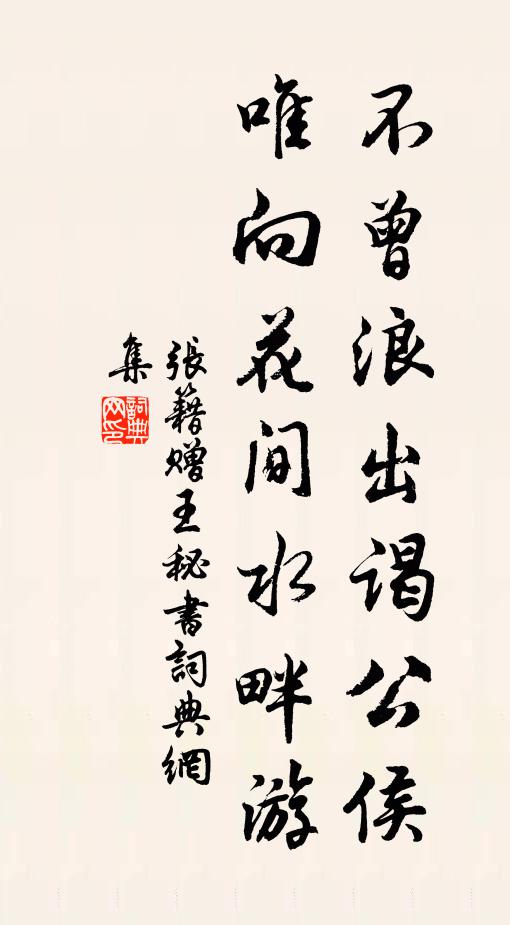 不曾浪出谒公侯
唯向花间水畔游
張籍赠王秘書詞典網
集
詞典
网印